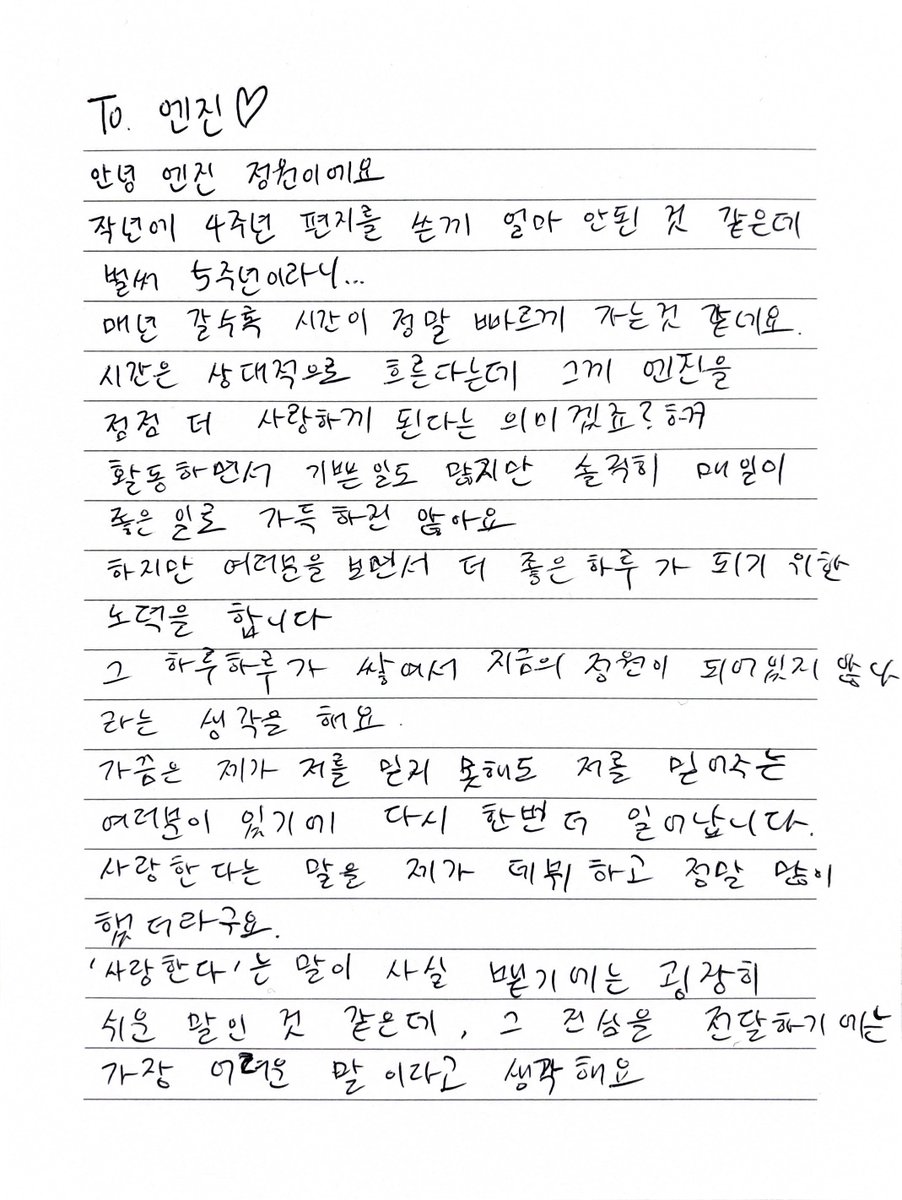 To. 엔진♡
안녕 엔진 정원이에요
작년에 4주년 편지를 쓴게 얼마 안된 것 같은데
벌써 5주년이라니...
매년 갈수록 시간이 정말 빠르게 가는것 같네요.
시간은 상대적으로 흐른다는데 그게 엔진을
점점 더 사랑하게 된다는 의미겠죠? ㅎㅎ
활동하면서 기쁜일도 많지만 솔직히 매일이
좋은 일로 가득하진 않아요
하지만 여러분을 보면서 더 좋은하루가 되기 위한
노력을 합니다
그 하루하루가 쌓여서 지금의 정원이 되어있지 않나
라는 생각을 해요.
가끔은 제가 저를 믿지 못해도 저를 믿어주는
여러분이 있기에 다시 한번 더 일어납니다.
사랑한다는 말을 제가 데뷔하고 정말 많이
했더라구요.
'사랑한다'는 말이 사실 뱉기에는 굉장히
쉬운 말인 것 같은데, 그 진심을 전달하기에는
가장 어려운 말이라고 생각해요